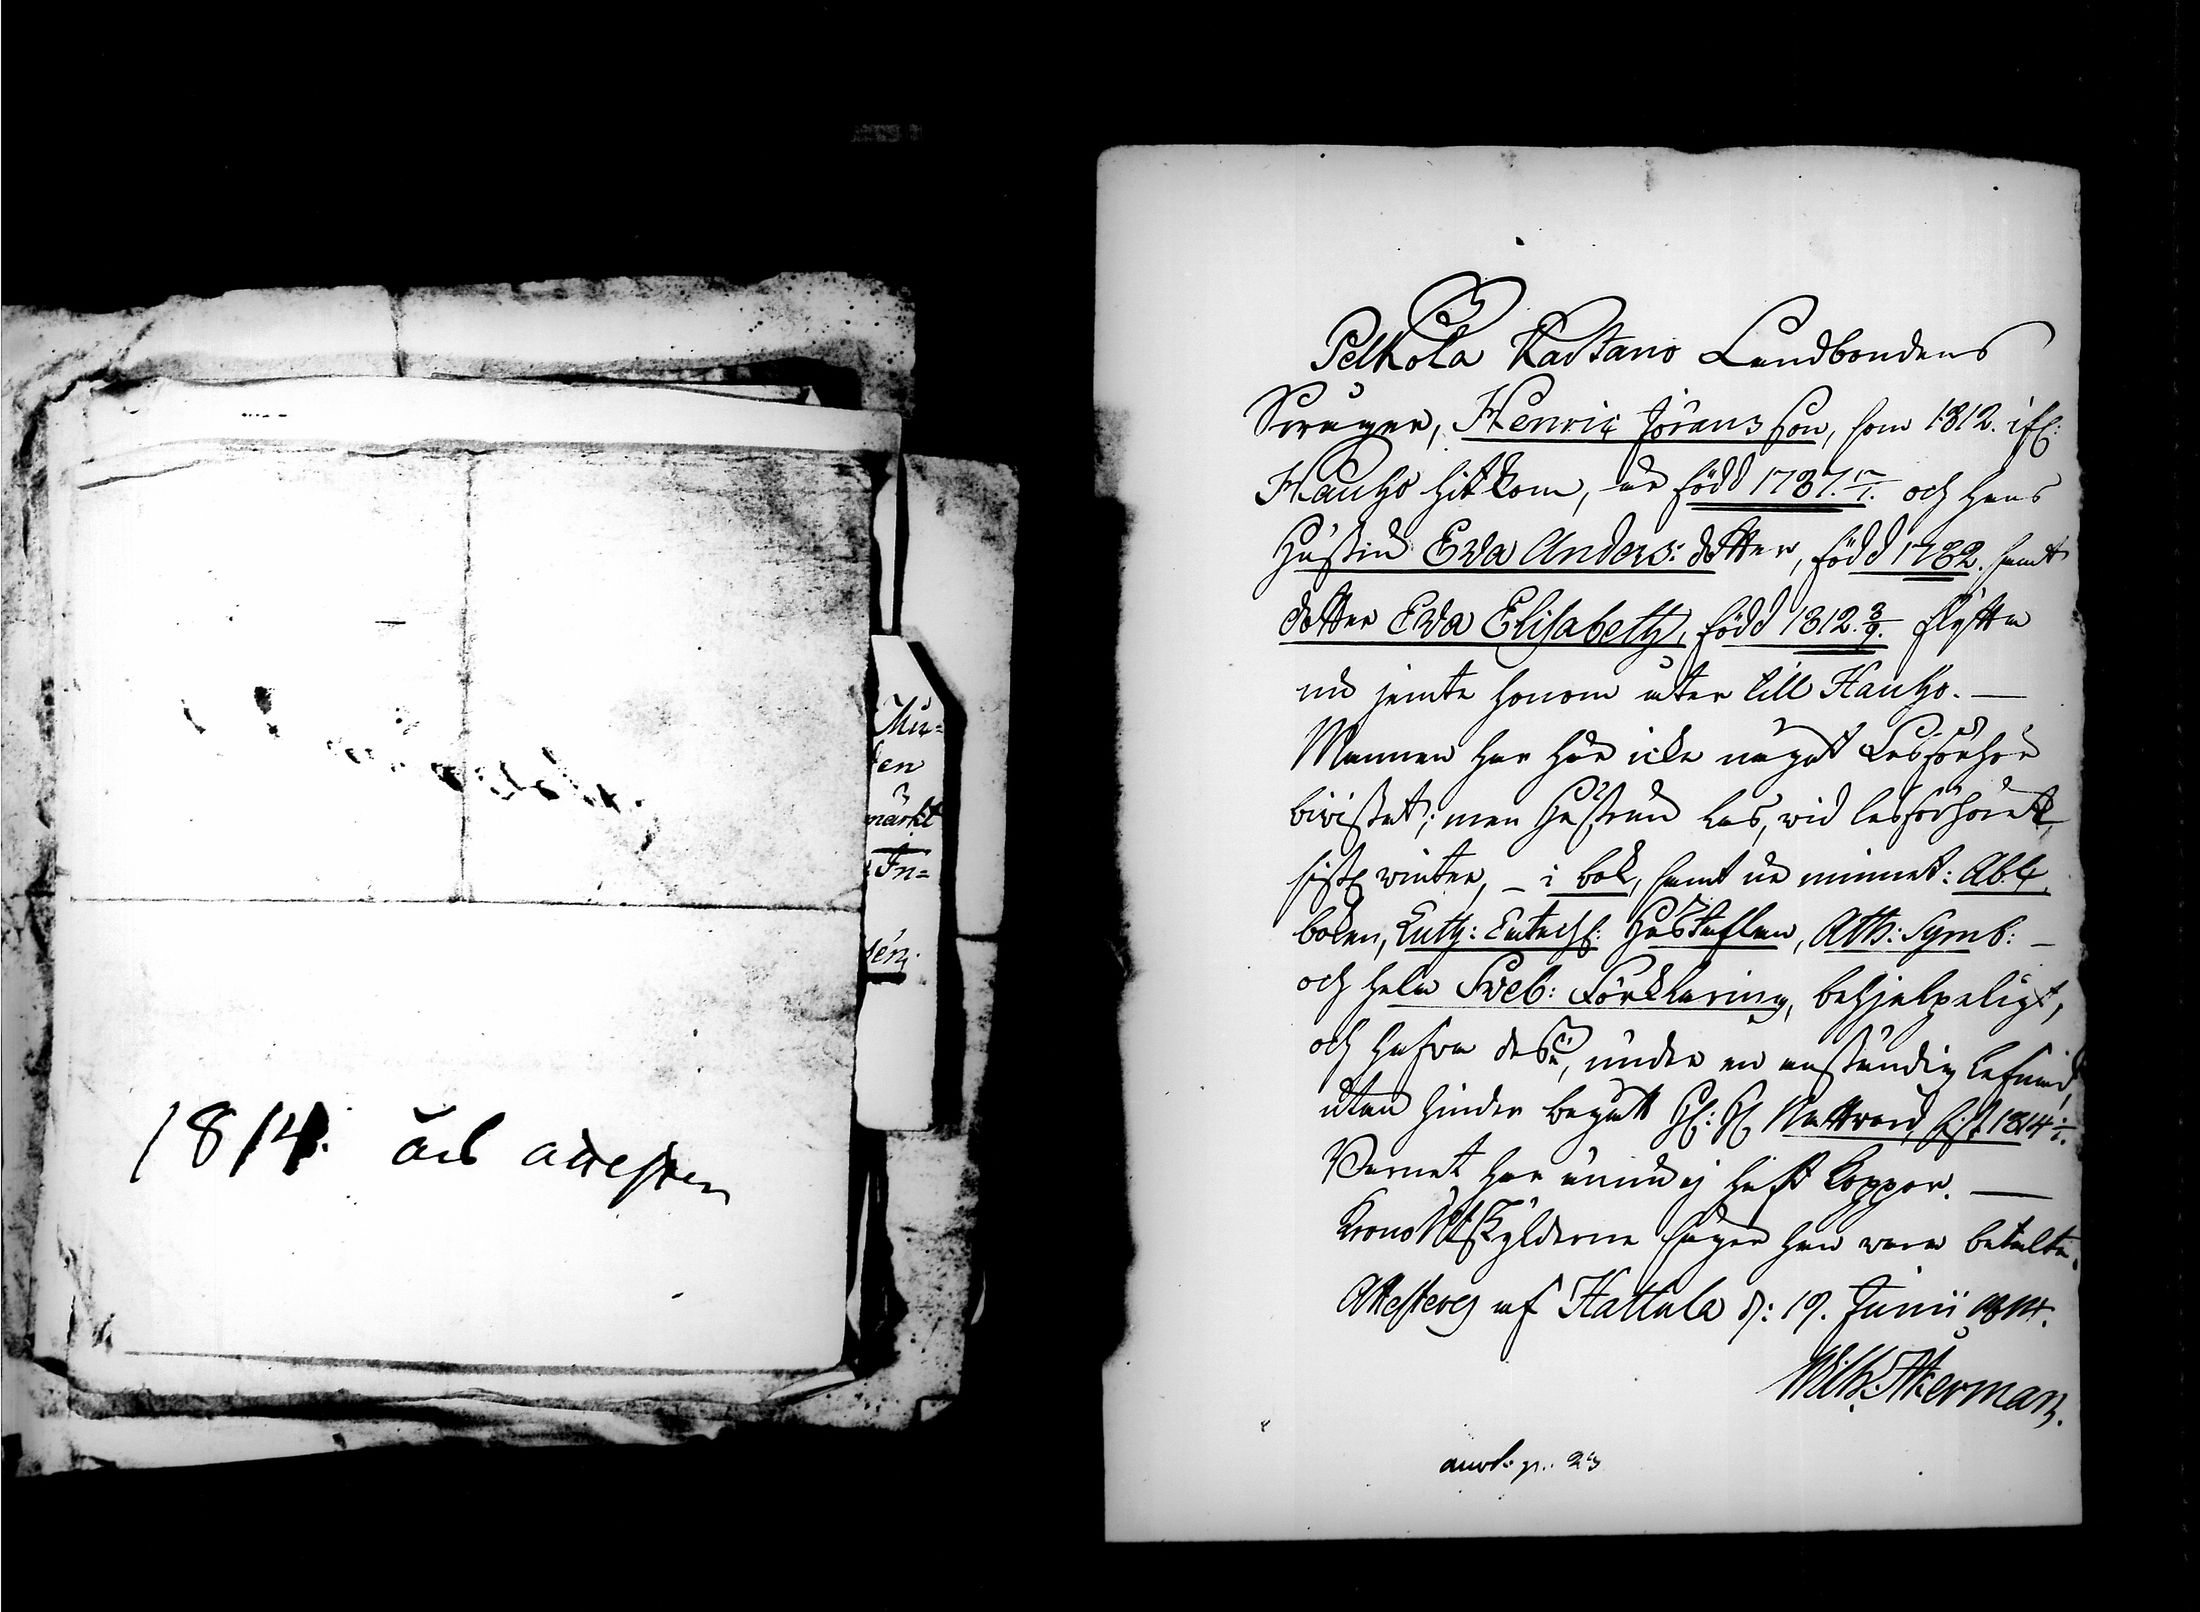 1814. års attester
Mu-
en
märkt
Fn=
sén.
Pelkola Kartano Landbondens
Swåger, Henric Jörans son, som 1812. ifr:
Hauho hitkom, är född 1787. 17/1. och hans
Hustru Ewa Anders: dotter, född 1782. samt
dotter Ewa Elisabeth, född 1812. 3/9. flytta
nu jemte honom åter till Hauho. —
Mannen har här icke något Läsförhör
biwistat; men Hustrun läs, wid läsförhöret
sistl. winter, – i bok, samt ur minnet: Ab c
boken, Luth: Catech: Hustaflan, Ath: Symb: –
och hela Sveb: Förklaring, behjelpeligt,
och hafva desse, under en anständig lefnad,
utan hinder begått H: H: Nattward, sist 1814
Barnet har ännu ej haft koppor. —
Krono Utskylderne säger han wara betalte.
Attesteras af Hattula d: 19. Junii 1814.
Wilh: Åkerman.
p. 23